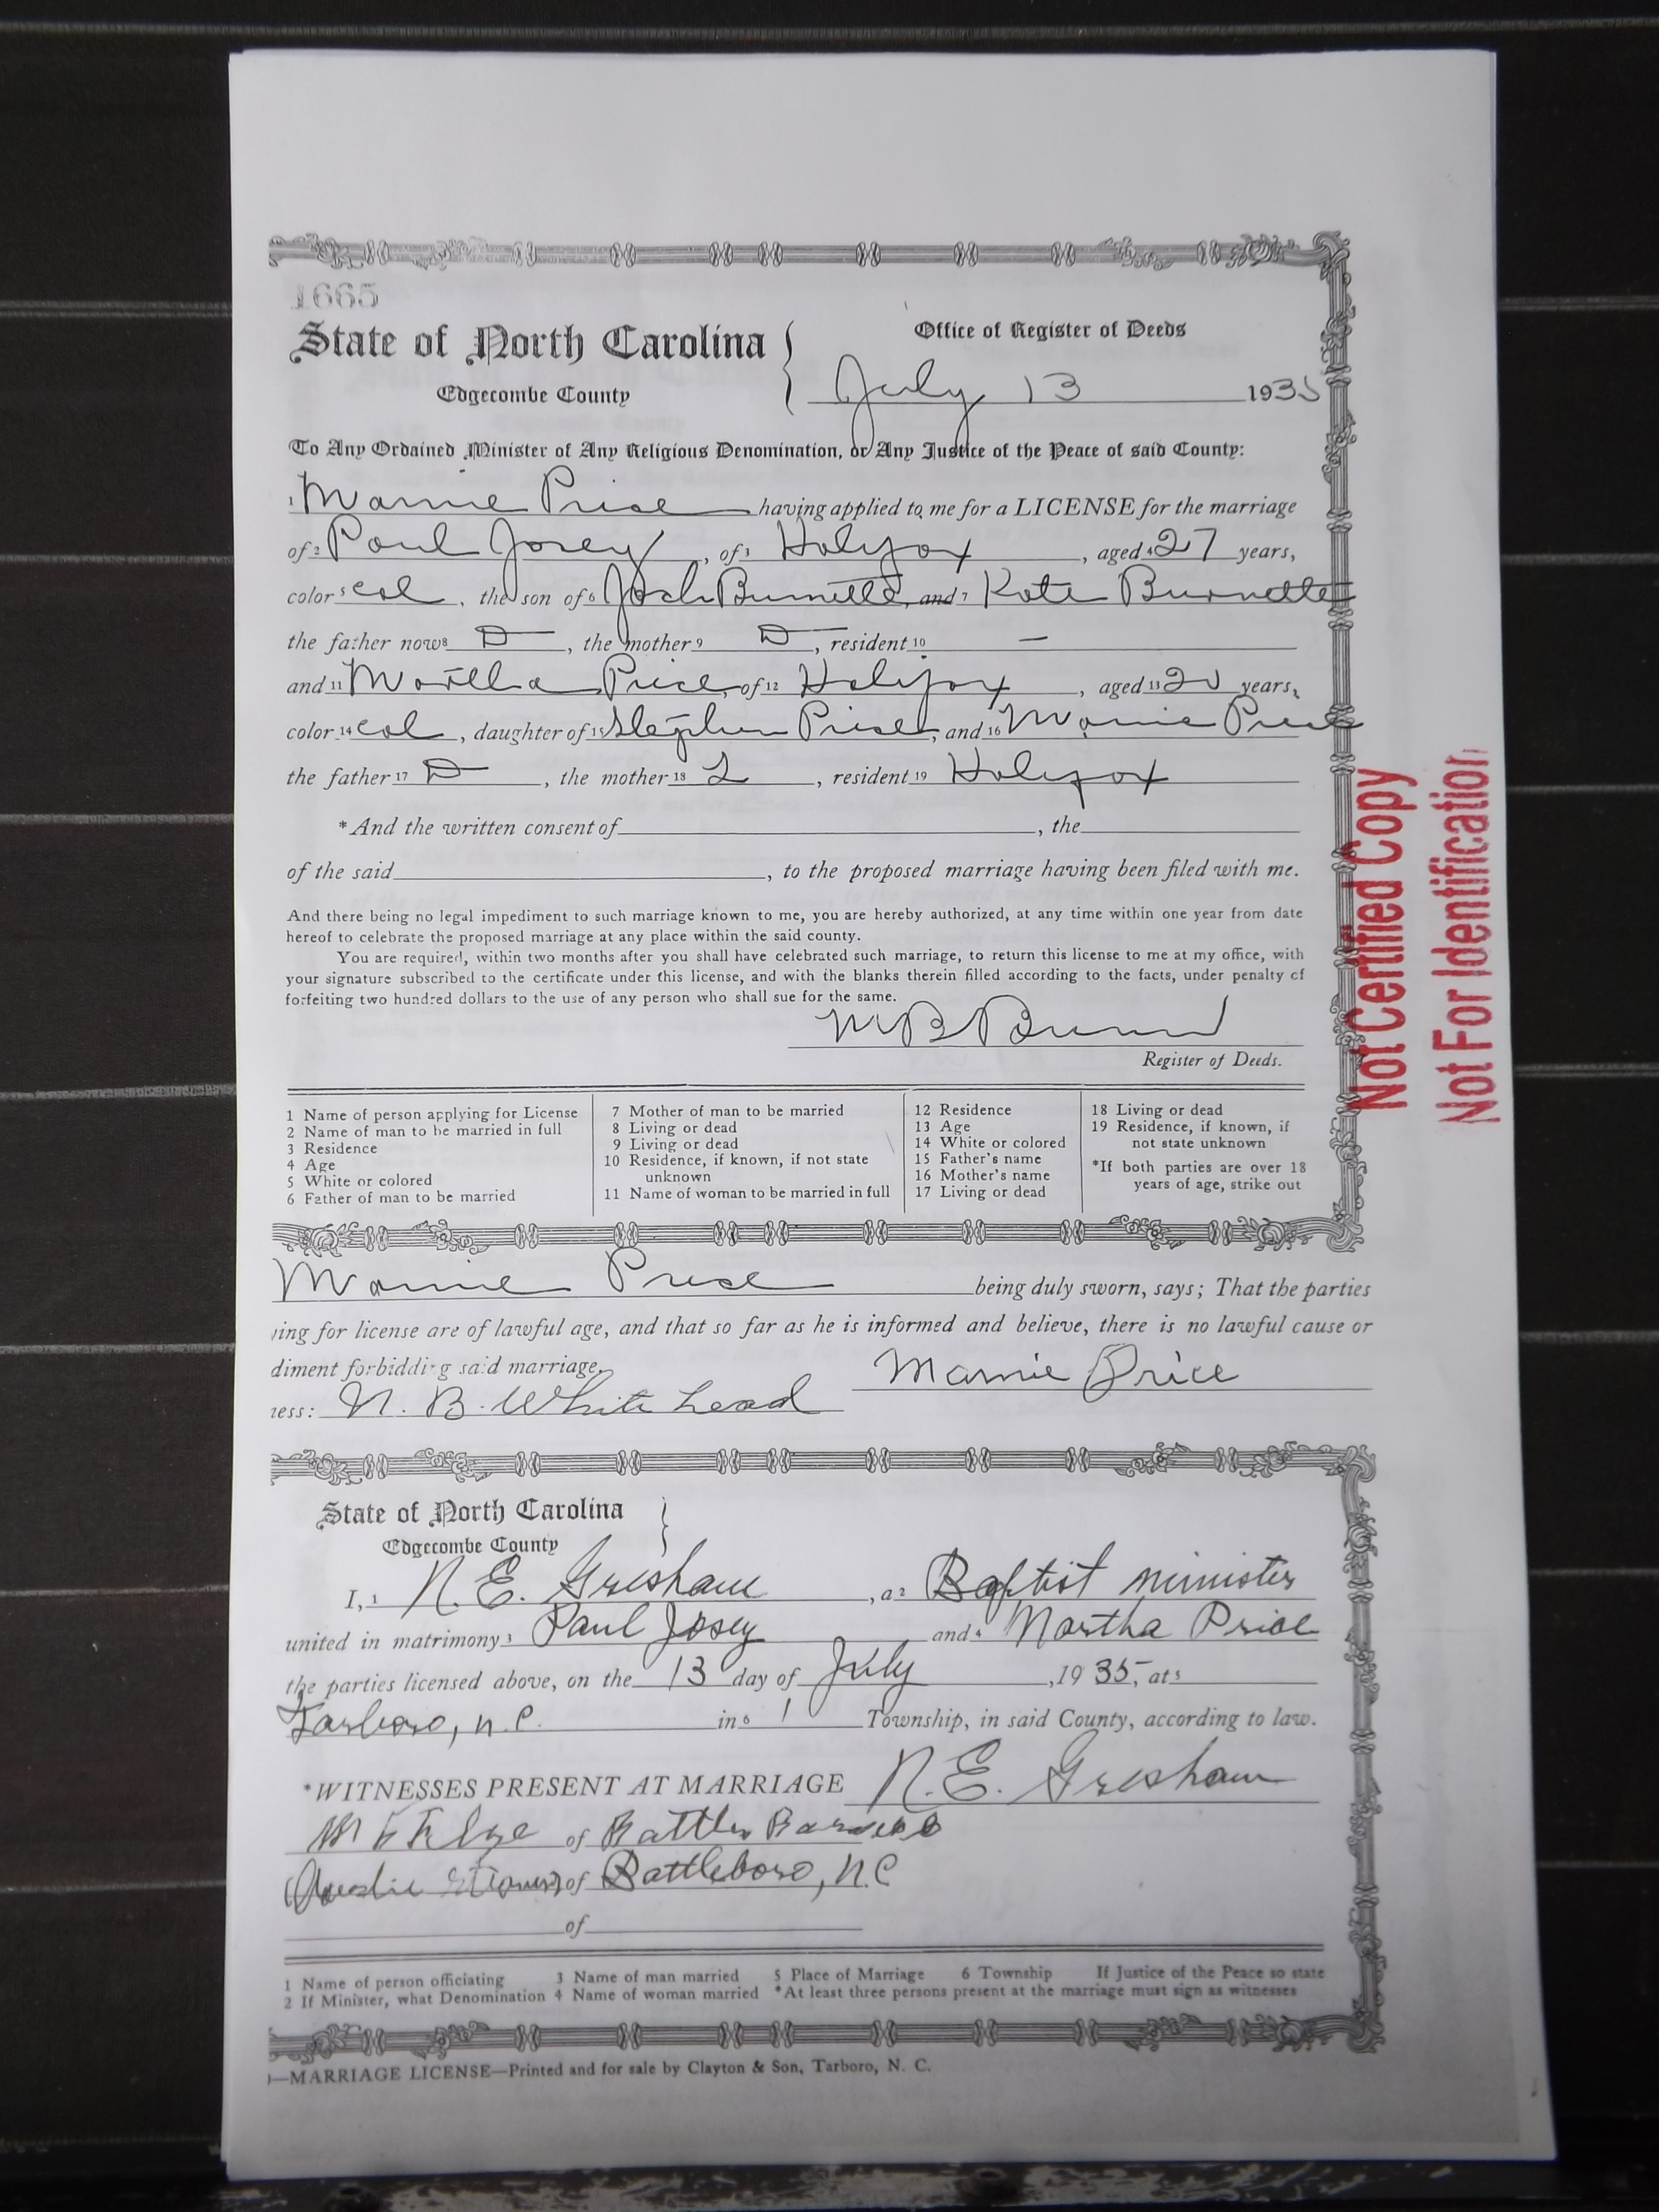 1665
State of North Carolina
Edgecombe County
Office of Register of Deeds
July 13 1935
To Any Ordained Minister of Any Religious Denomination, or Any Justice of the Peace of said County:
1 Mamie Price having applied to me for a LICENSE for the marriage
of 2 Paul Josey, of 3 Halifax, aged 4 27 years,
color 5 col, the son of 6 Josh Burnette, and 7 Kate Burnette
the father now 8 D, the mother 9 D, resident 10 —
and 11 Martha Price, of 12 Halifax, aged 13 years,
color 14 col, daughter of 15 Stephen Price, and 16 Mamie Price
the father 17 D, the mother 18 L, resident 19 Halifax
*And the written consent of , the
of the said , to the proposed marriage having been filed with me.
And there being no legal impediment to such marriage known to me, you are hereby authorized, at any time within one year from date
hereof to celebrate the proposed marriage at any place within the said county.
You are required, within two months after you shall have celebrated such marriage, to return this license to me at my office, with
your signature subscribed to the certificate under this license, and with the blanks therein filled according to the facts, under penalty of
forfeiting two hundred dollars to the use of any person who shall sue for the same.
Register of Deeds.
Not Certified Copy
Not For Identification
1 Name of person applying for License
2 Name of man to be married in full
3 Residence
4 Age
5 White or colored
6 Father of man to be married
7 Mother of man to be married
8 Living or dead
9 Living or dead
10 Residence, if known, if not state
unknown
11 Name of woman to be married in full
12 Residence
13 Age
14 White or colored
15 Father's name
16 Mother's name
17 Living or dead
18 Living or dead
19 Residence, if known, if
not state unknown
*If both parties are over 18
years of age, strike out
Mamie Price being duly sworn, says; That the parties
ying for license are of lawful age, and that so far as he is informed and believe, there is no lawful cause or
diment forbidding said marriage.
Mamie Price
ness: N. B. White head
State of North Carolina
Edgecombe County
I, 1 N. E. Gresham, a 2 Baptist minister
united in matrimony 3 Paul Josey and 4 Martha Price
the parties licensed above, on the 13 day of July, 1935, at 5
Tarboro, N.C. in 6 1 Township, in said County, according to law.
*WITNESSES PRESENT AT MARRIAGE N.E. Gresham
of
of Battleboro, N.C
of
1 Name of person officiating 3 Name of man married 5 Place of Marriage 6 Township If Justice of the Peace so state
2 If Minister, what Denomination 4 Name of woman married *At least three persons present at the marriage must sign as witnesses
)—MARRIAGE LICENSE—Printed and for sale by Clayton & Son, Tarboro, N. C.